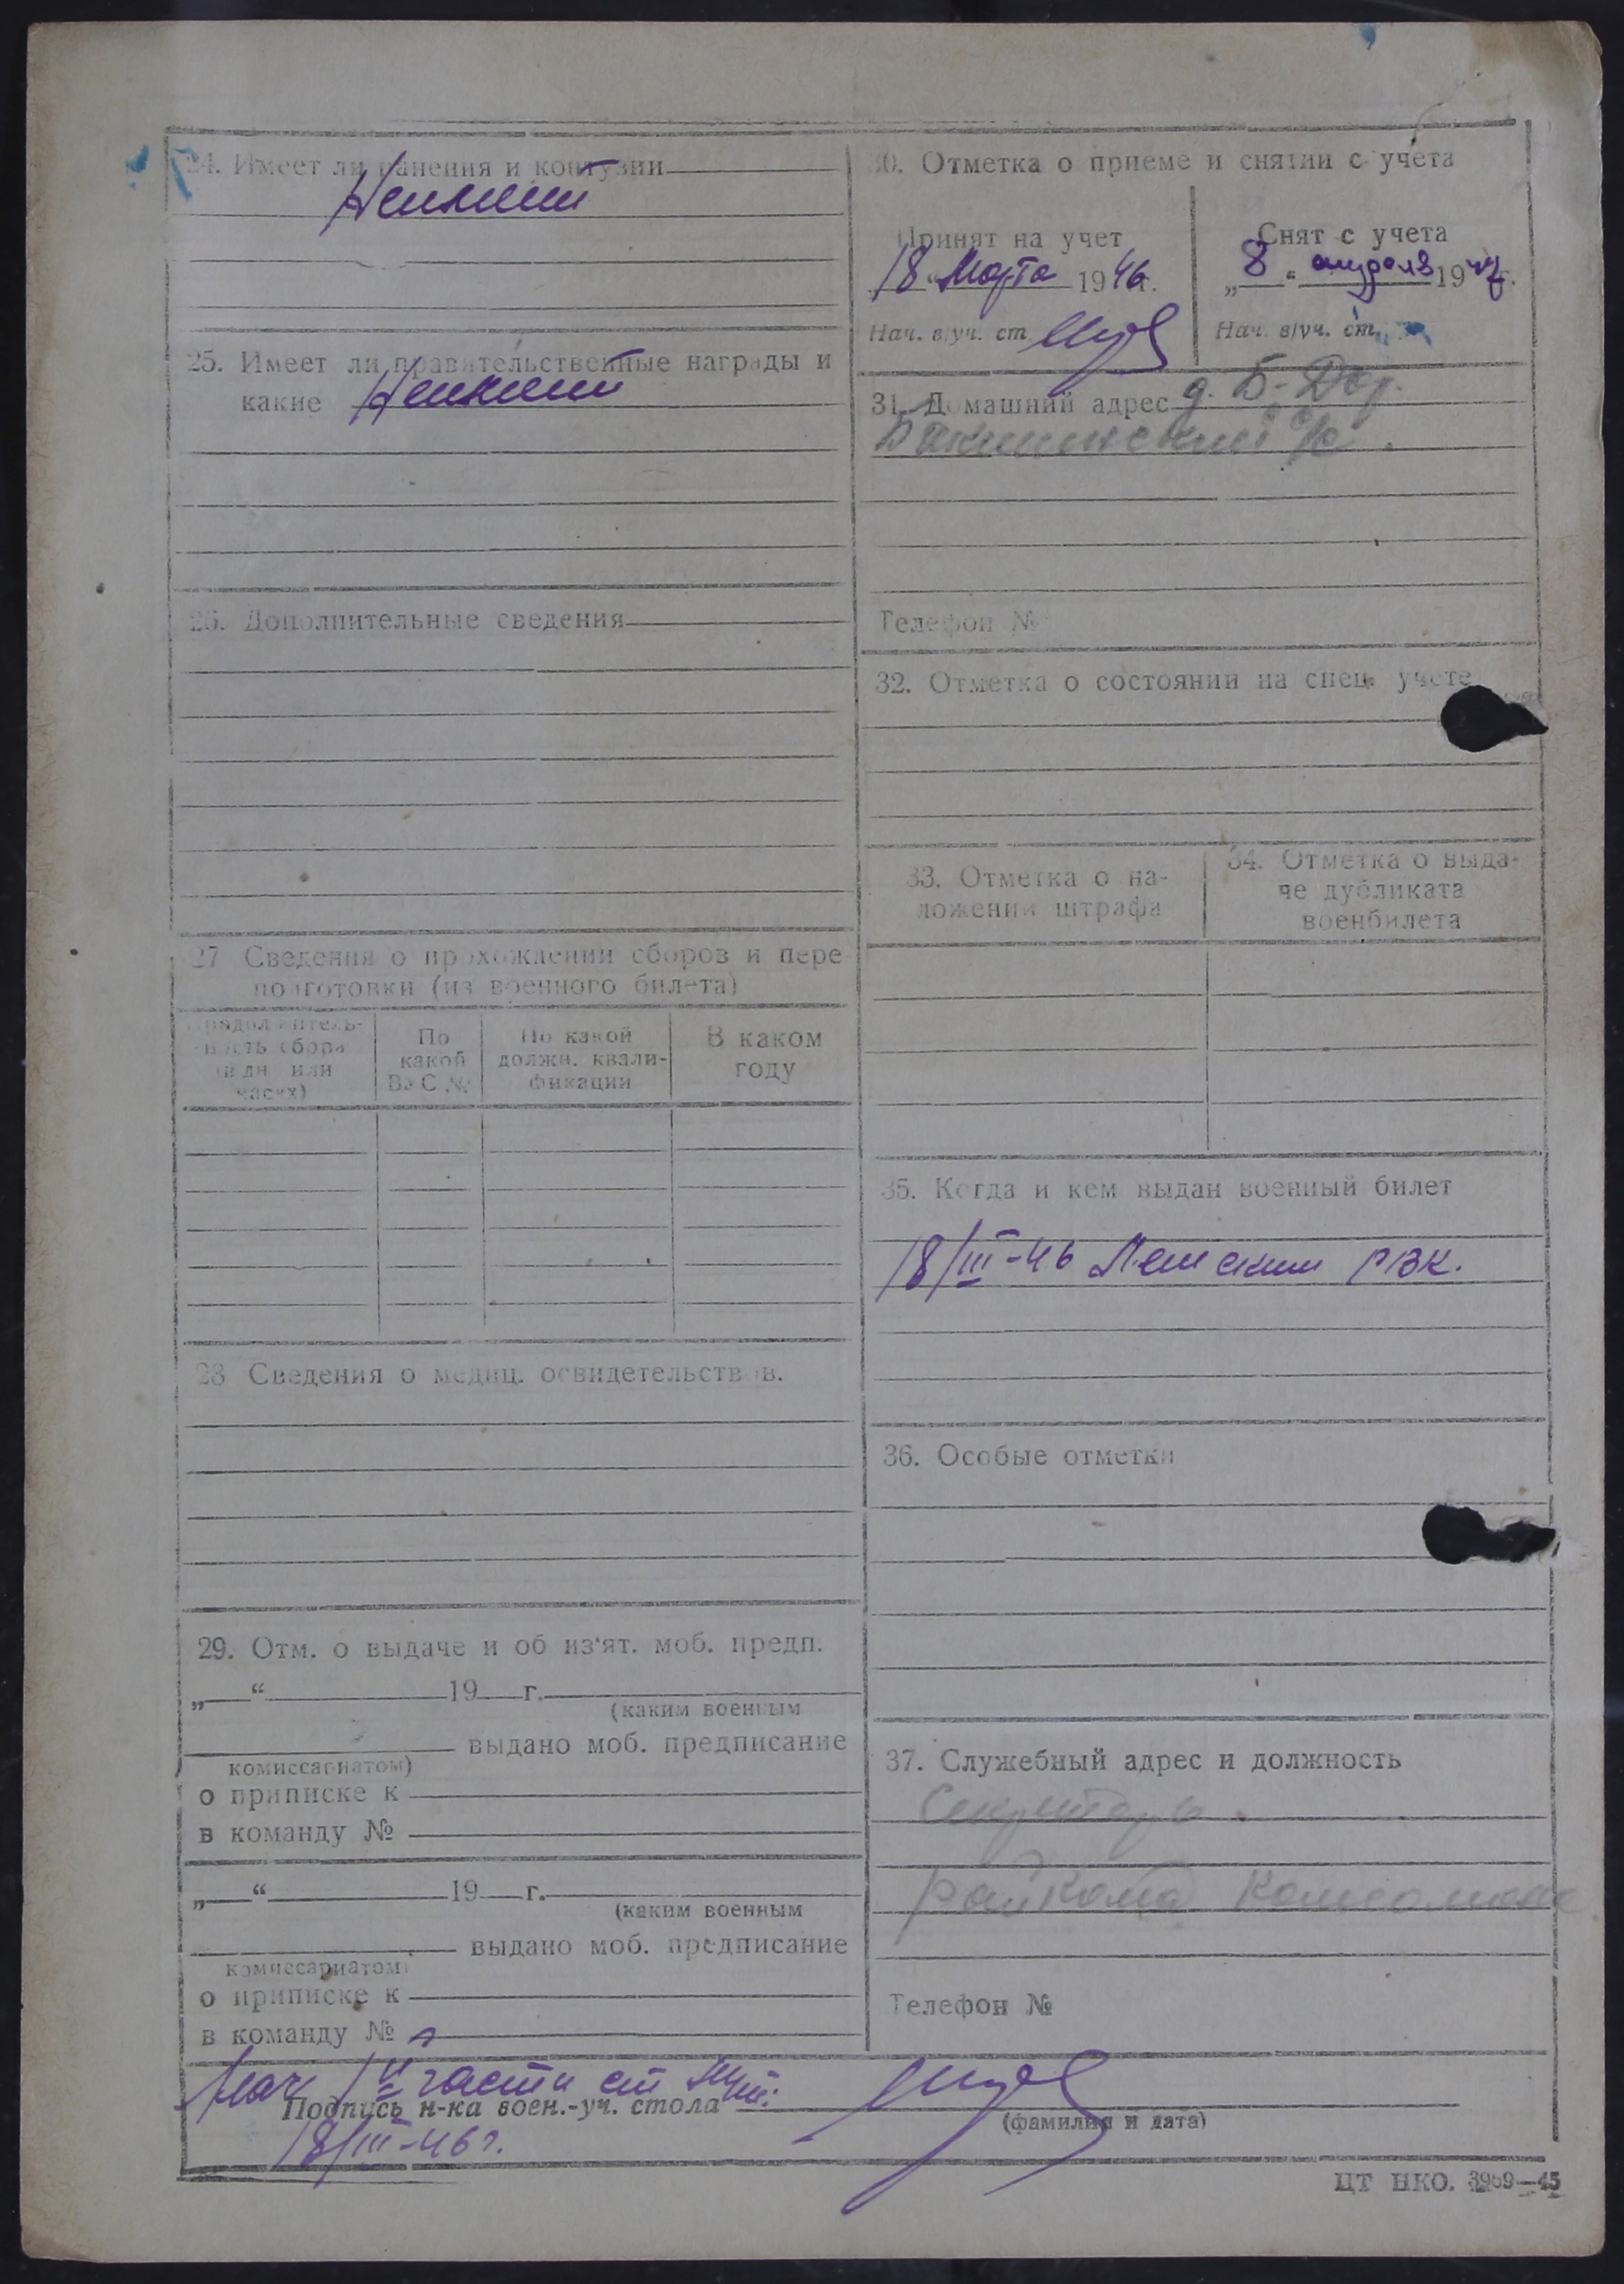 24. Имеет ли ранения и контузии
Неимеет
25. Имеет ли правительственные награды и
какие Неимеет
26. Дополнительные сведения
27 Сведения о прохождении сборов и пере
подготовки (из военного билета)
Продолжитель-
ность сбора
(в дн. или
часах)
По
какой
ВУС №
По какой
должн. квали-
фикации
В каком
году
28 Сведения о медиц. освидетельствов.
29. Отм. о выдаче и об из'ят. моб. предп.
„ “ 19 г.
(каким военным
выдано моб. предписание
комиссариатом)
о приписке к
в команду №
„ “ 19 г.
(каким военным
выдано моб. предписание
комиссариатом)
о приписке к
в команду №
30. Отметка о приеме и снятии с учета
Принят на учет
18 “ Марта 1946 г.
Нач. в/уч. ст.
Снят с учета
„ 8 “ апреля 1947 г.
Нач. в/уч. ст.
31. Домашний адрес д. Б-Дор.
с/с.
Телефон №
32. Отметка о состоянии на спец. учете
33. Отметка о на-
ложении штрафа
34. Отметка о выда-
че дубликата
военбилета
35. Когда и кем выдан военный билет
18/III-46 РВК.
36. Особые отметки
37. Служебный адрес и должность
Секретарь
райкома комсомола
Телефон №
Нач II части ст
Подпись н-ка воен.-уч. стола
(фамилия и дата)
18/III-46 г.
ЦТ НКО. 3969—45